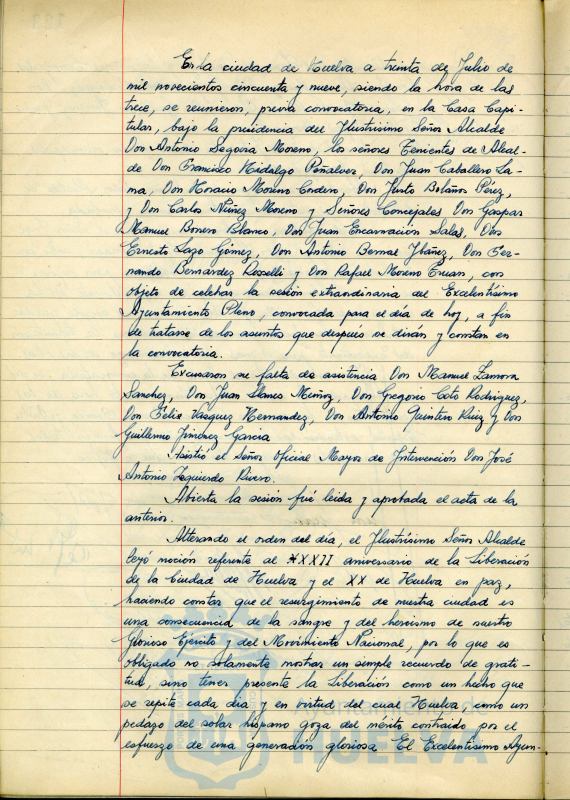 En la ciudad de Huelva a treinta de Julio de
mil novecientos cincuenta y nueve, siendo la hora de las
trece, se reunieron, previa convocatoria, en la Casa Capi-
tular, bajo la presidencia del Ilustrísimo Señor Alcalde
Don Antonio Segovia Moreno, los señores Tenientes de Alcal-
de Don Francisco Hidalgo Peñalver, Don Juan Caballero La-
ma, Don Horacio Moreno Cordero, Don Justo Bolaños Pérez,
y Don Carlos Núñez Moreno y Señores Concejales Don Gaspar
Manuel Borrero Blanco, Don Juan Encarnación Salas, Don
Ernesto Lazo Gómez, Don Antonio Bernal Ybáñez, Don Fer-
nando Bernárdez Rosselli y Don Rafael Moreno, con
objeto de celebrar la sesión extraordinaria del Excelentísimo
Ayuntamiento Pleno, convocada para el día de hoy, a fin
de tratarse de los asuntos que después se dirán y constan en
la convocatoria.
Excusaron su falta de asistencia Don Manuel Zamora
Sanchez, Don Juan Llanes Muñoz, Don Gregorio Coto Rodriguez,
Don Felix Vazquez Hernandez, Don Antonio Quintero Ruiz y Don
Guillermo Jimenez Garcia
Asistió el Señor Oficial Mayor de Intervención Don José
Antonio Izquierdo Rivero.
Abierta la sesión fué leida y aprobada el acta de la
anterior.
Alterando el orden del dia, el Ilustrísimo Señor Alcalde
leyó moción referente al XXII aniversario de la Liberación
de la Ciudad de Huelva y el XX de Huelva en paz,
haciendo constar que el resurgimiento de nuestra ciudad es
una consecuencia de la sangre y del heroismo de nuestro
Glorioso Ejército y del Movimiento Nacional, por lo que es
obligado no solamente mostrar un simple recuerdo de grati-
tud, sino tener presente la Liberación como un hecho que
se repite cada dia y en virtud del cual Huelva, como un
pedazo del solar hispano goza del mérito contraido por el
esfuerzo de una generación gloriosa. El Excelentísimo Ayun-
HUELVA